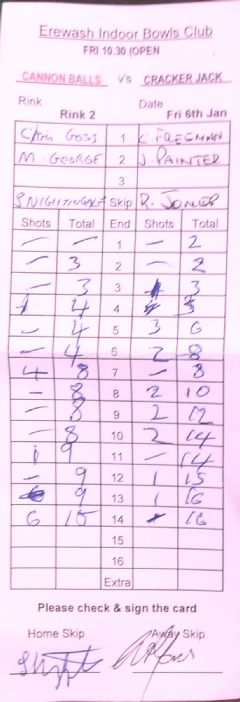 Erewash Indoor Bowls Club
FRI 10.30 (OPEN
CANNON BALLS v's CRACKER JACK
Rink Date
Rink 2 Fri 6th Jan
Chris Goss 1 C. FREEMAN
M. GEORGE 2 J. PAINTER
3
S NIGHTINGALE Skip R. JONES
Shots Total End Shots Total
— — 1 — 2
— 3 2 — 2
— 3 3 3
4 4
— 4 5 3 6
— 4 6 2 8
4 8 7 — 8
— 8 8 2 10
— 8 9 2 12
— 8 10 2 14
1 9 11 — 14
— 9 12 1 15
9 13 1 16
6 15 14 16
15
16
Extra
Please check & sign the card
Home Skip Away Skip